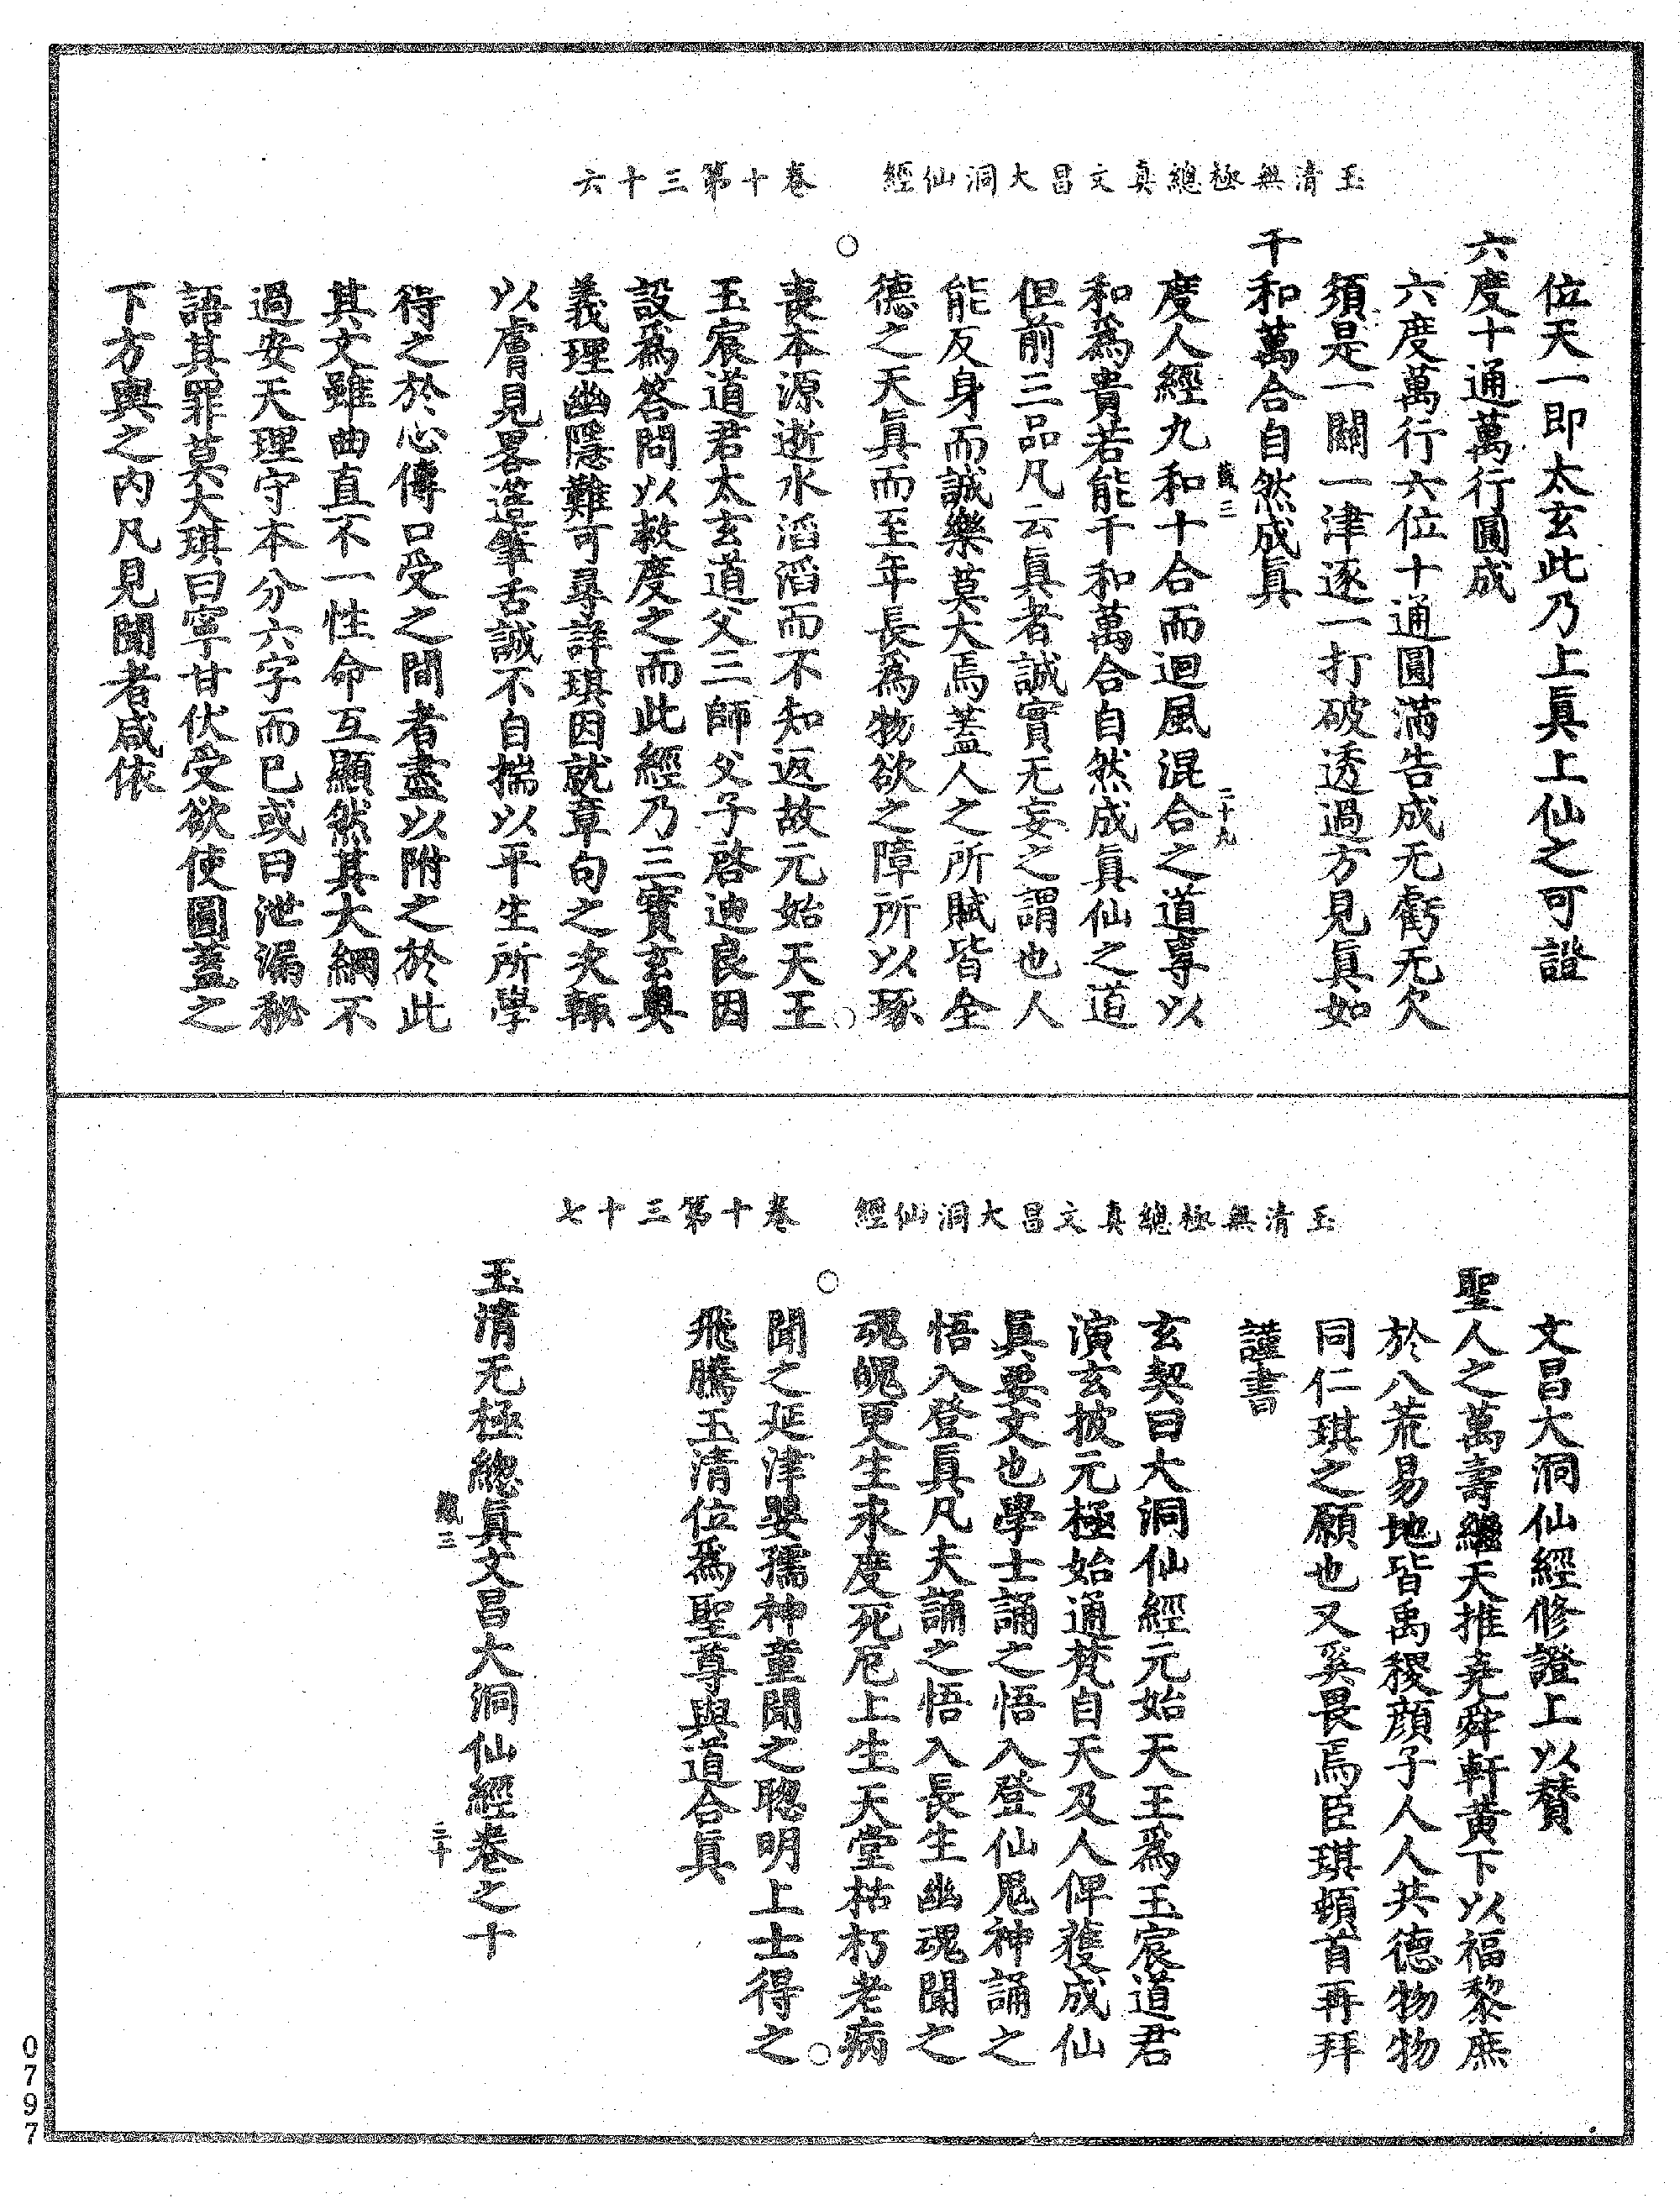 玉清無極總真文昌大洞仙經　卷十第三十六
位天一即太玄此乃上眞上仙之可證
六度十通萬行圓成
六度萬行六位十通圓滿告成无虧无欠
須是一關一津逐一打破透過方見眞如
千和萬合自然成眞
藏三　二十九
度人經九和十合而迴風混合之道尋以
和為貴若能千和萬合自然成眞仙之道
但前三品凡云眞者誠實无妄之謂也人
能反身而誠樂莫大焉蓋人之所賦皆全
德之天眞而至年長為物欲之障所以琢
喪本源逝水滔滔而不知返故元始天王
玉宸道君太玄道父三師父子啓迪良因
設為答問以敕度之而此經乃三寶玄奧
義理幽隱難可尋詳琪因就章句之次輒
以膚見畧茖筆舌誠不自揣以平生所學
待之於心傳口受之間者盡以附之於此
其文雖曲直不一性命互顯然其大綱不
過安天理守本分六字而已或曰泄漏秘
語其罪莫大琪曰寧甘伏受欲使圓蓋之
下方輿之內凡見聞者咸依
玉清無極總真文昌大洞仙經　卷十第三十七
文昌大洞仙經修證上以贊
聖人之萬壽繼天推堯舜軒黃下以福黎庶
於八荒易地皆禹稷顔子人人共德物物
同仁琪之願也又奚畏焉臣琪頓首再拜
謹書
玄契曰大洞仙經元始天王為玉宸道君
演玄披元極始通梵自天及人俾獲成仙
眞要文也學士誦之悟入登仙鬼神誦之
悟入登眞凡夫誦之悟入長生幽魂聞之
魂魄更生永度死厄上生天堂枯朽老病
聞之延津嬰孺神童聞之聰明上士得之
飛騰玉清位為聖尊與道合眞
玉清无極總眞文昌大洞仙經卷之十
藏三　三十
0797